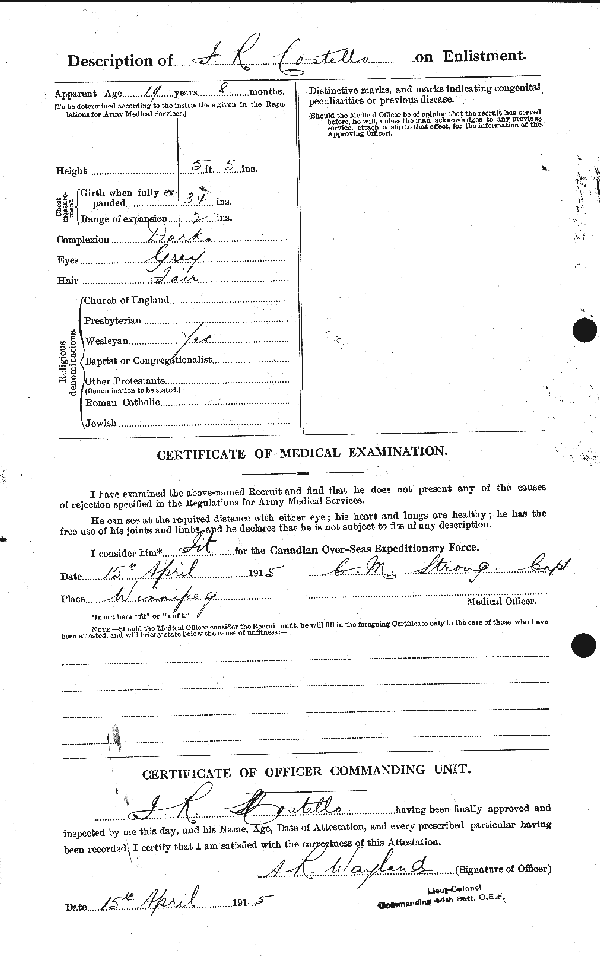 Description of J R Costello on Enlistment.
Apparent Age 19 years 8 months.
(To be determined according to the instructions given in the Regu-
lations for Army Medical Services.)
Distinctive marks, and marks indicating congenital
peculiarities or previous disease.
(Should the Medical Officer be of opinion that the recruit has served
before, he will, unless the man acknowledges to any previous
service, attach a slip to that effect, for the information of the
Approving Officer).
Height 5 ft. 5 ins.
Chest measurement
Girth when fully ex-
panded 34 ins.
Range of expansion 2 ins.
Complexion Dark
Eyes Grey
Hair Fair
Religious denominations
Church of England
Presbyterian
Wesleyan Yes
Baptist or Congregationalist
Other Protestants
(Denomination to be stated.)
Roman Catholic
Jewish
CERTIFICATE OF MEDICAL EXAMINATION.
I have examined the above-named Recruit and find that he does not present any of the causes
of rejection specified in the Regulations for Army Medical Services.
He can see at the required distance with either eye; his heart and lungs are healthy; he has the
free use of his joints and limbs, and he declares that he is not subject to fits of any description.
I consider him* Fit for the Canadian Over-Seas Expeditionary Force.
Date 15th April 1915 C. M. Strong. Capt
Place Winnipeg
Medical Officer.
*Insert here "fit" or "unfit."
NOTE.—Should the Medical Officer consider the Recruit unfit, he will fill in the foregoing Certificate only in the case of those who have
been attested, and will briefly state below the cause of unfitness:—
CERTIFICATE OF OFFICER COMMANDING UNIT.
J R Costello having been finally approved and
inspected by me this day, and his Name, Age, Date of Attestation, and every prescribed particular having
been recorded, I certify that I am satisfied with the correctness of this Attestation.
Wayland (Signature of Officer)
Lieut-Colonel
Commanding 44th Batt. C.E.F.
Date 15th April 1915